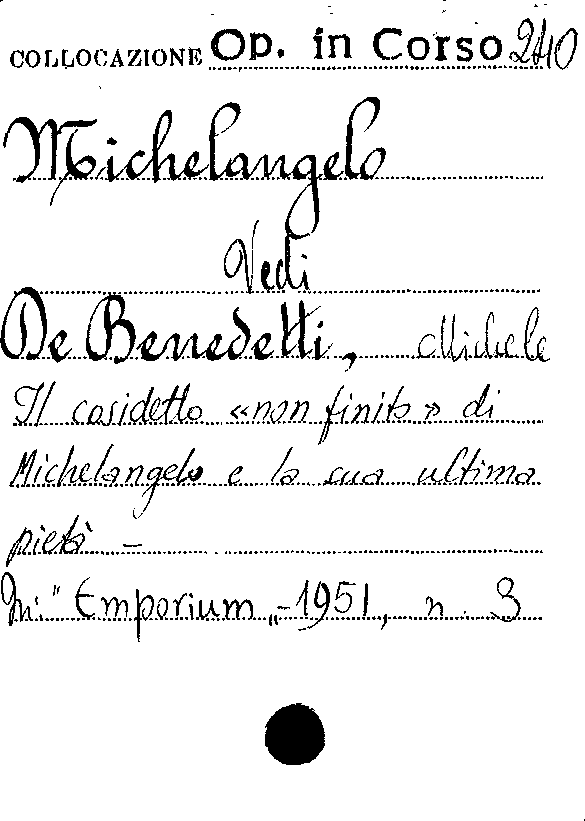 COLLOCAZIONE Op. in Corso 240
Michelangelo
Vedi
De Benedetti, Michele
Il cosidetto «non finito» di
Michelangelo e la sua ultima
pietà -
In: "Emporium„ - 1951, n. 3